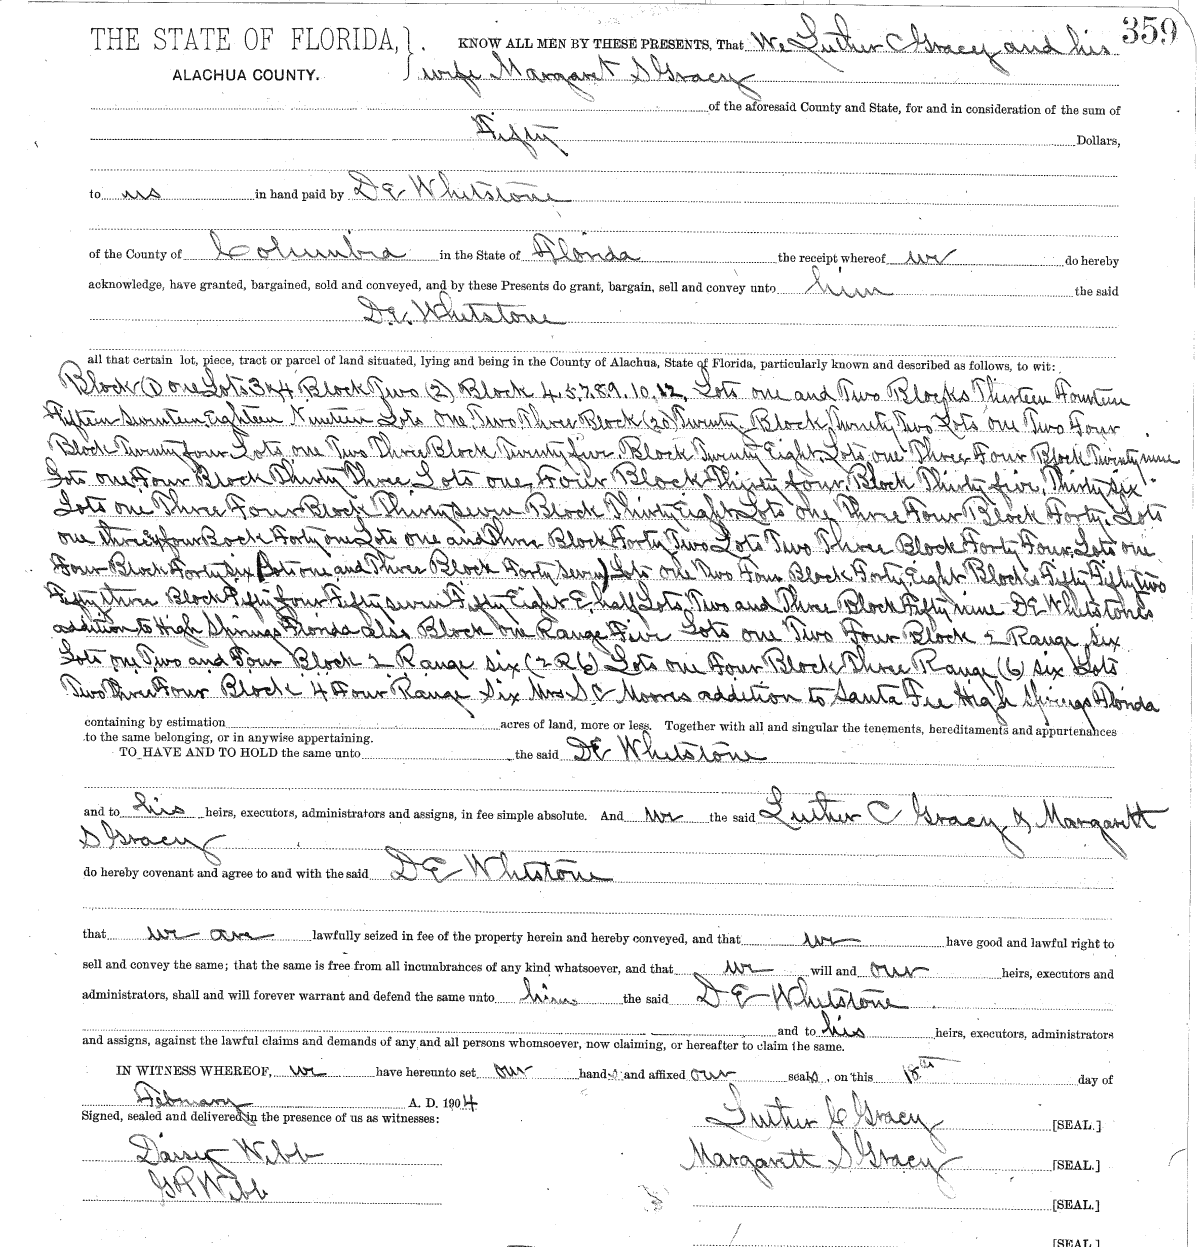 359
THE STATE OF FLORIDA, }. KNOW ALL MEN BY THESE PRESENTS, That We Luther C Gracy and his
ALACHUA COUNTY. wife Margaret S Gracy
of the aforesaid County and State, for and in consideration of the sum of
Fifty Dollars,
to us in hand paid by D E Whetstone
of the County of Columbia in the State of Florida the receipt whereof we do hereby
acknowledge, have granted, bargained, sold and conveyed, and by these Presents do grant, bargain, sell and convey unto him the said
D. E. Whetstone
all that certain lot, piece, tract or parcel of land situated, lying and being in the County of Alachua, State of Florida, particularly known and described as follows, to wit:
Block (1) one Lots 3 & 4 Block Two (2) Block 4. 5. 7. 8. 9. 10. 12. Lots one and Two Blocks Thirteen Fourteen
Fifteen Seventeen Eighteen Nineteen Lots one, Two Three Block (20) Twenty. Block Twenty Two Lots one Two Four
Block Twenty four Lots one Two Three Block Twenty five Block Twenty Eight Lots one Three Four Block Twenty nine
Lots one Four Block Thirty Three Lots one Four Block Thirty four, Block Thirty five, Thirty six
Lots one Three Four Block Thirty seven Block Thirty Eight Lots one Three Four Block Forty. Lots
one three & four Bock Forty one Lots one and Three Block Forty Two Lots Two Three Block Forty Four, Lots one
Four Block Forty six (Lots one and Three Block Forty seven) Lots one Two Four Block Forty Eight Blocks Fifty Fifty two
Fifty three Block Fifty four Fifty seven Fifty Eight E. half Lots, Two and Three Block Fifty nine D E Whetstones
addition to High Springs Florida also Block one Range Five Lots one Two Four Block 2 Range six
Lots one Two and Four Block 2 Range six (2 R 6) Lots one Four Block Three Range (6) six Lots
Two Three Four Block 4 Four Range Six Mrs S C Moores addition to Santa Fee High Springs Florida
containing by estimation acres of land, more or less. Together with all and singular the tenements, hereditaments and appurtenances
to the same belonging, or in anywise appertaining.
TO HAVE AND TO HOLD the same unto the said D E Whetstone
and to his heirs, executors, administrators and assigns, in fee simple absolute. And we the said Luther C Gracy & Margarett
S Gracy
do hereby covenant and agree to and with the said D E Whtstone
that we are lawfully seized in fee of the property herein and hereby conveyed, and that we have good and lawful right to
sell and convey the same; that the same is free from all incumbrances of any kind whatsoever, and that we will and our heirs, executors and
administrators, shall and will forever warrant and defend the same unto him the said D E Whetstone
and to his heirs, executors, administrators
and assigns, against the lawful claims and demands of any and all persons whomsoever, now claiming, or hereafter to claim the same.
IN WITNESS WHEREOF, we have hereunto set our hands and affixed our seals, on this 18th day of
February A. D. 1904
Signed, sealed and delivered in the presence of us as witnesses:
Luther C Gracy [SEAL.]
Daisy Webb
Margarett S Gracy [SEAL.]
G R Webb
[SEAL.]
[SEAL.]